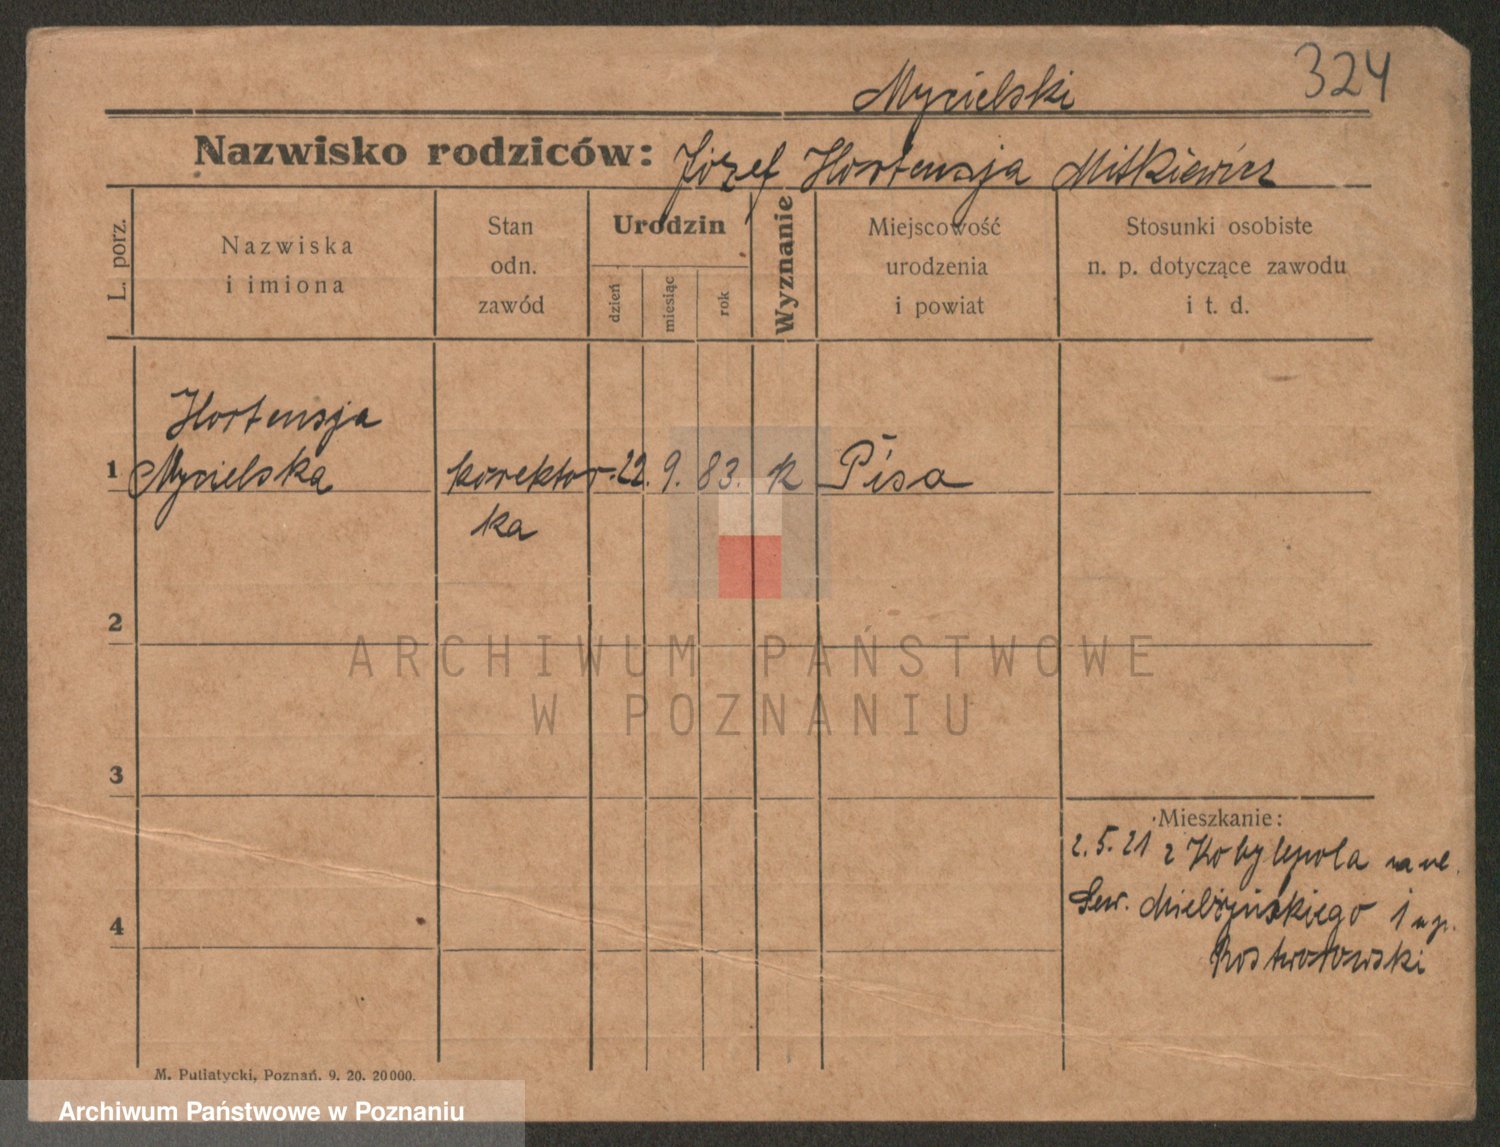 324
Mycielski
Nazwisko rodziców: Józef Hortensja Mitkiewicz
L. porz.
Nazwiska
i imiona
Stan
odn.
zawód
Urodzin
dzień
miesiąc
rok
Wyznanie
Miejscowość
urodzenia
i powiat
Stosunki osobiste
n. p. dotyczące zawodu
i t. d.
Hortensja
1 Mycielska korektor- 22. 9. 83. k Pisa
ka
2
ARCHIWUM PAŃSTWOWE
W POZNANIU
3
Mieszkanie:
2.5.21 z Kobylepola na ul.
Sew. Mielżyńskiego 1 u p.
4
Rostworowski
M. Putiatycki, Poznań. 9. 20. 20000.
Archiwum Państwowe w Poznaniu